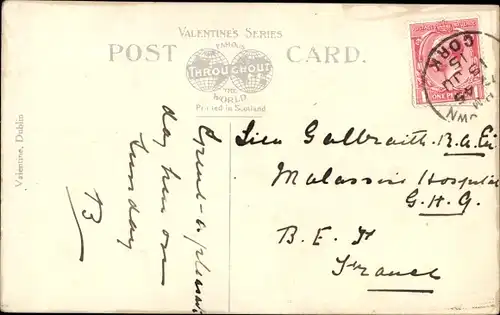 VALENTINE'S SERIES
POST CARD.
FAMOUS
THROUGHOUT
THE
WORLD
Printed in Scotland
Valentine, Dublin
CORK
JU
15
Spend a pleasant
day here on
Tuesday
B
Lieu Galbraith. R.A.
Malassise Hospital
G.H.Q.
B. E. F.
France